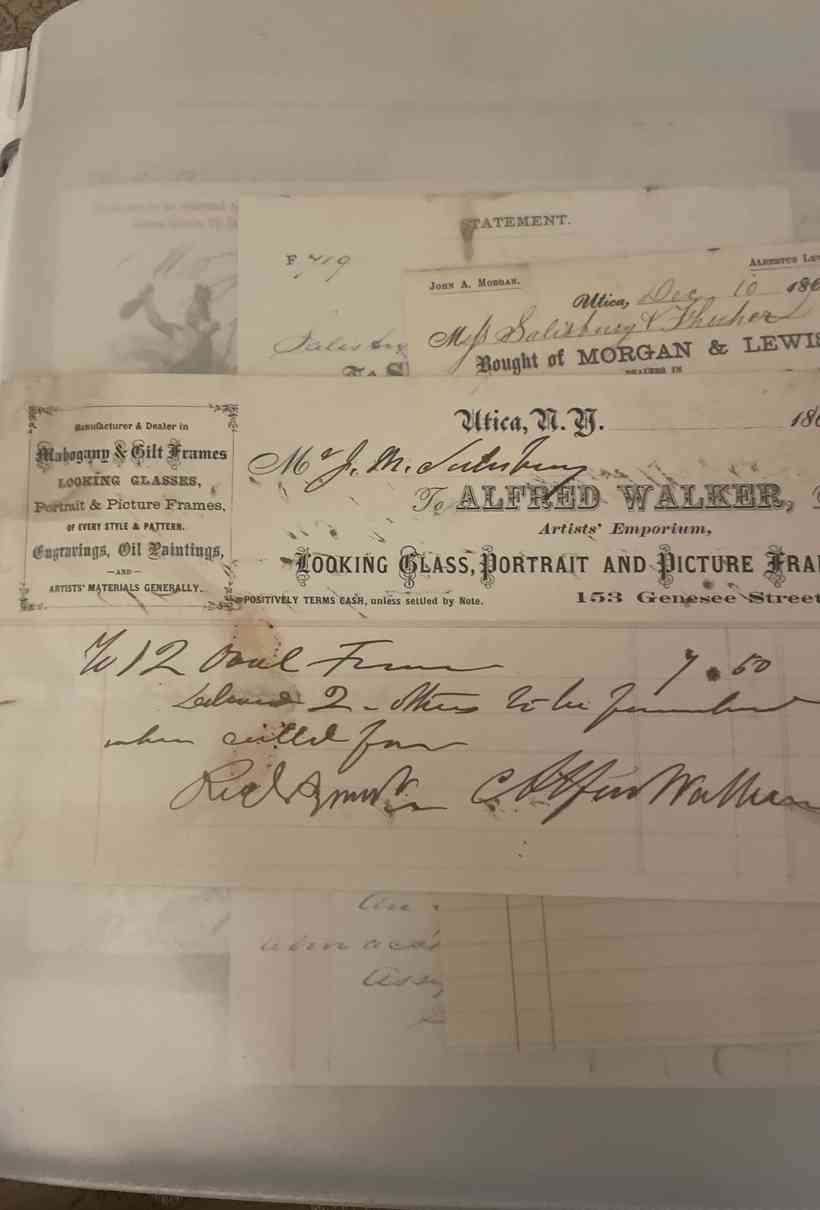 STATEMENT.
F 719
JOHN A. MORGAN.
ALBERTUS LEW
Utica, Dec 10 186
Mess Salisbury &
Bought of MORGAN & LEWIS
DEALERS IN
Manufacturer & Dealer in
Mahogany & Gilt Frames
LOOKING GLASSES,
Portrait & Picture Frames,
OF EVERY STYLE & PATTERN.
Engravings, Oil Paintings,
—AND—
ARTISTS' MATERIALS GENERALLY.
Utica, N. Y. 186
Mr J. M. Salisbury
To ALFRED WALKER,
Artists' Emporium,
LOOKING GLASS, PORTRAIT AND PICTURE FRA
POSITIVELY TERMS CASH, unless settled by Note.
153 Genesee Street
To 12 Oval Frames 7.50
2 - others to be furnished
when called for
Recd Payment Walker